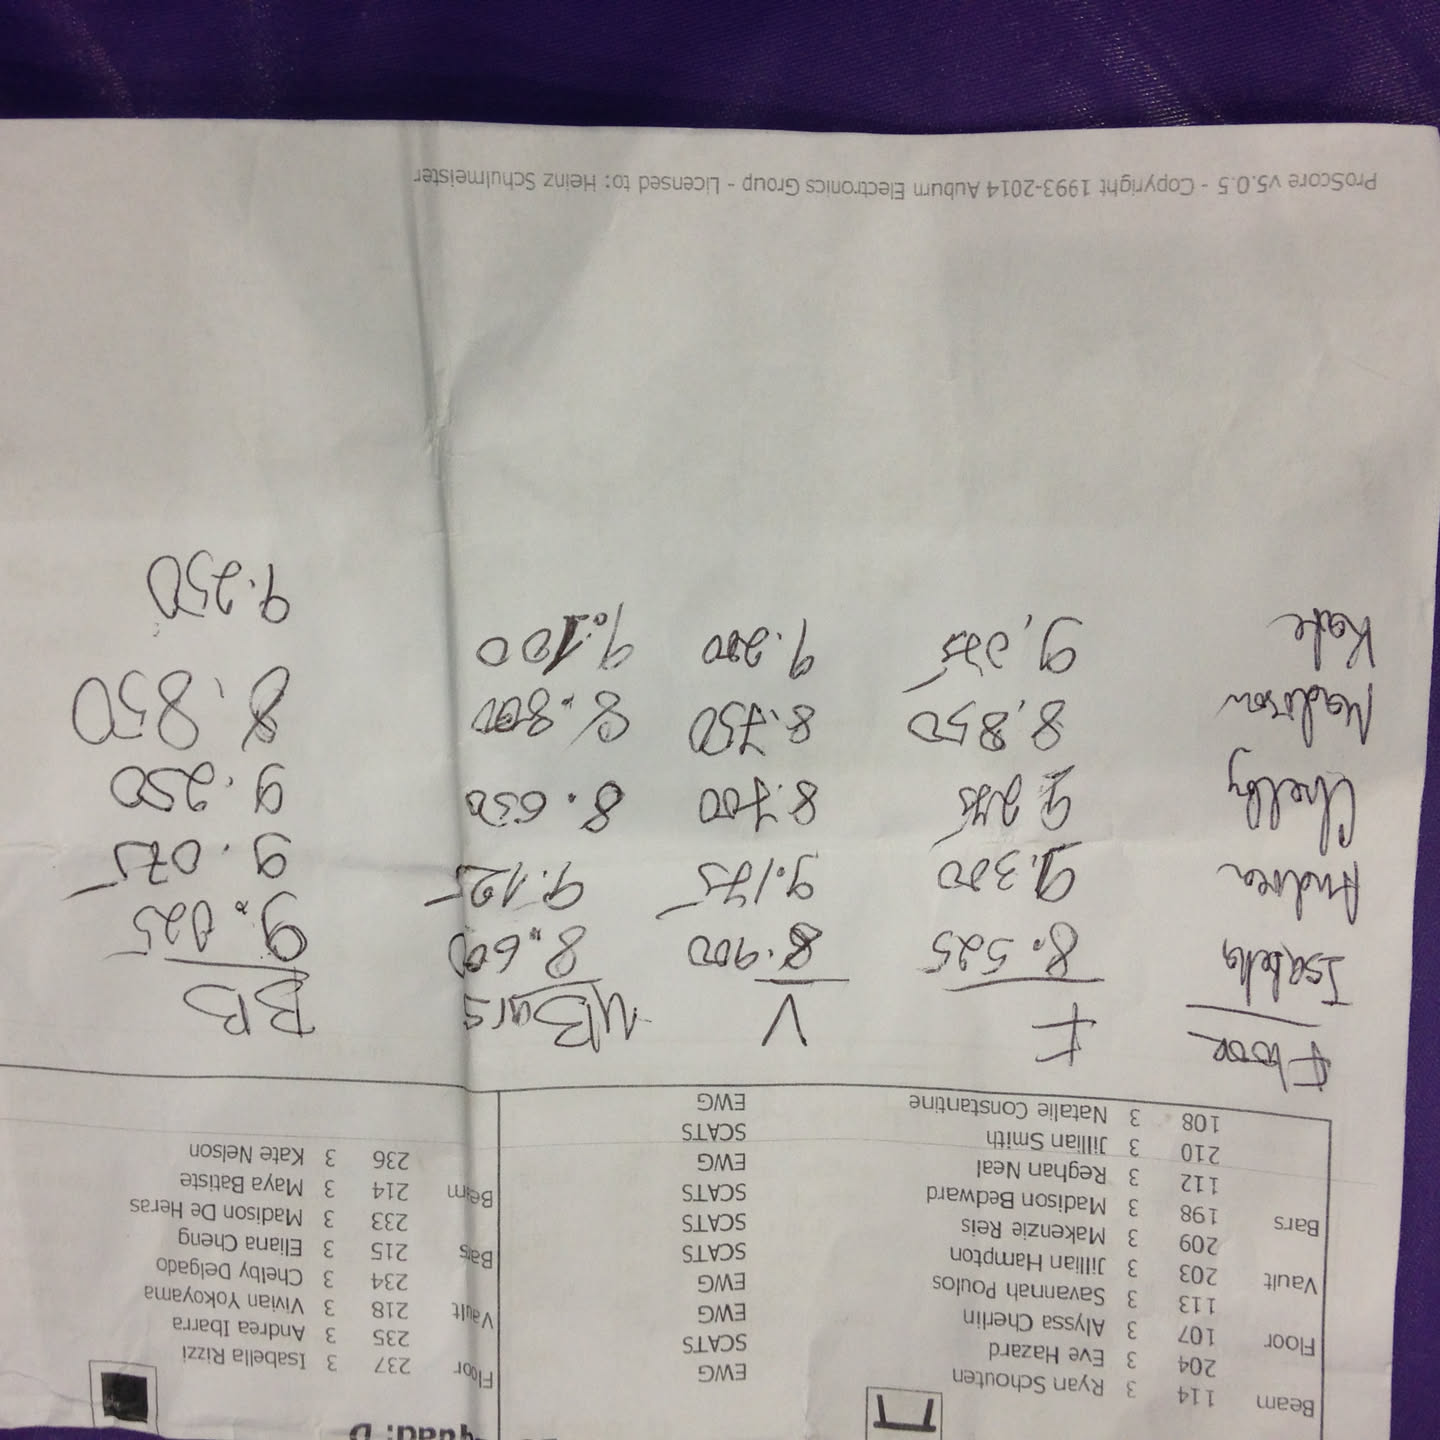 quad: D
Beam 114 3 Ryan Schouten EWG
204 3 Eve Hazard SCATS
Floor 107 3 Alyssa Cherlin EWG
113 3 Savannah Poulos EWG
Vault 203 3 Jillian Hampton SCATS
209 3 Makenzie Reis SCATS
Bars 198 3 Madison Bedward SCATS
112 3 Reghan Neal EWG
210 3 Jillian Smith SCATS
108 3 Natalie Constantine EWG
Floor 237 3 Isabella Rizzi
235 3 Andrea Ibarra
Vault 218 3 Vivian Yokoyama
234 3 Chelby Delgado
Bars 215 3 Eliana Cheng
233 3 Madison De Heras
Beam 214 3 Maya Batiste
236 3 Kate Nelson
Floor F V UBars BB
Isabella 8.525 8.900 8.600 9.025
Andrea 9.300 9.175 9.125 9.075
Chelby 9.275 8.700 8.650 9.250
Madison 8.850 8.750 8.800 8.850
Kate 9.200 9.100 9.250
ProScore v5.0.5 - Copyright 1993-2014 Auburn Electronics Group - Licensed to: Heinz Schulmeister